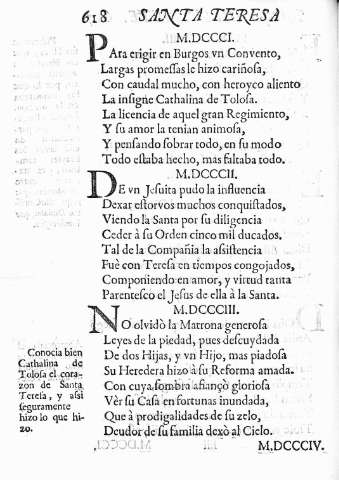 618 SANTA TERESA
M.DCCCI.
PAra erigir en Burgos vn Convento,
Largas promeſſas le hizo cariñoſa,
Con caudal mucho, con heroyco aliento
La inſigne Cathalina de Toloſa.
La licencia de aquel gran Regimiento,
Y ſu amor la tenian animoſa,
Y penſando ſobrar todo, en ſu modo
Todo eſtaba hecho, mas faltaba todo.
M.DCCCII.
DE vn Jeſuita pudo la influencia
Dexar eſtorvos muchos conquiſtados,
Viendo la Santa por ſu diligencia
Ceder à ſu Orden cinco mil ducados.
Tal de la Compañia la aſsiſtencia
Fuè con Tereſa en tiempos congojados,
Componiendo en amor, y virtud tanta
Parenteſco el Jeſus de ella à la Santa.
M.DCCCIII.
NO olvidò la Matrona generoſa
Leyes de la piedad, pues deſcuydada
De dos Hijas, y vn Hijo, mas piadoſa
Su Heredera hizo à ſu Reforma amada.
Con cuya ſombra afiançò glorioſa
Vèr ſu Caſa en fortunas inundada,
Que à prodigalidades de ſu zelo,
Deudor de ſu familia dexò al Cielo.
Conocia bien
Cathalina de
Toloſa el cora-
zon de Santa
Tereſa, y aſsi
ſeguramente
hizo lo que hi-
zo.
M.DCCCIV.